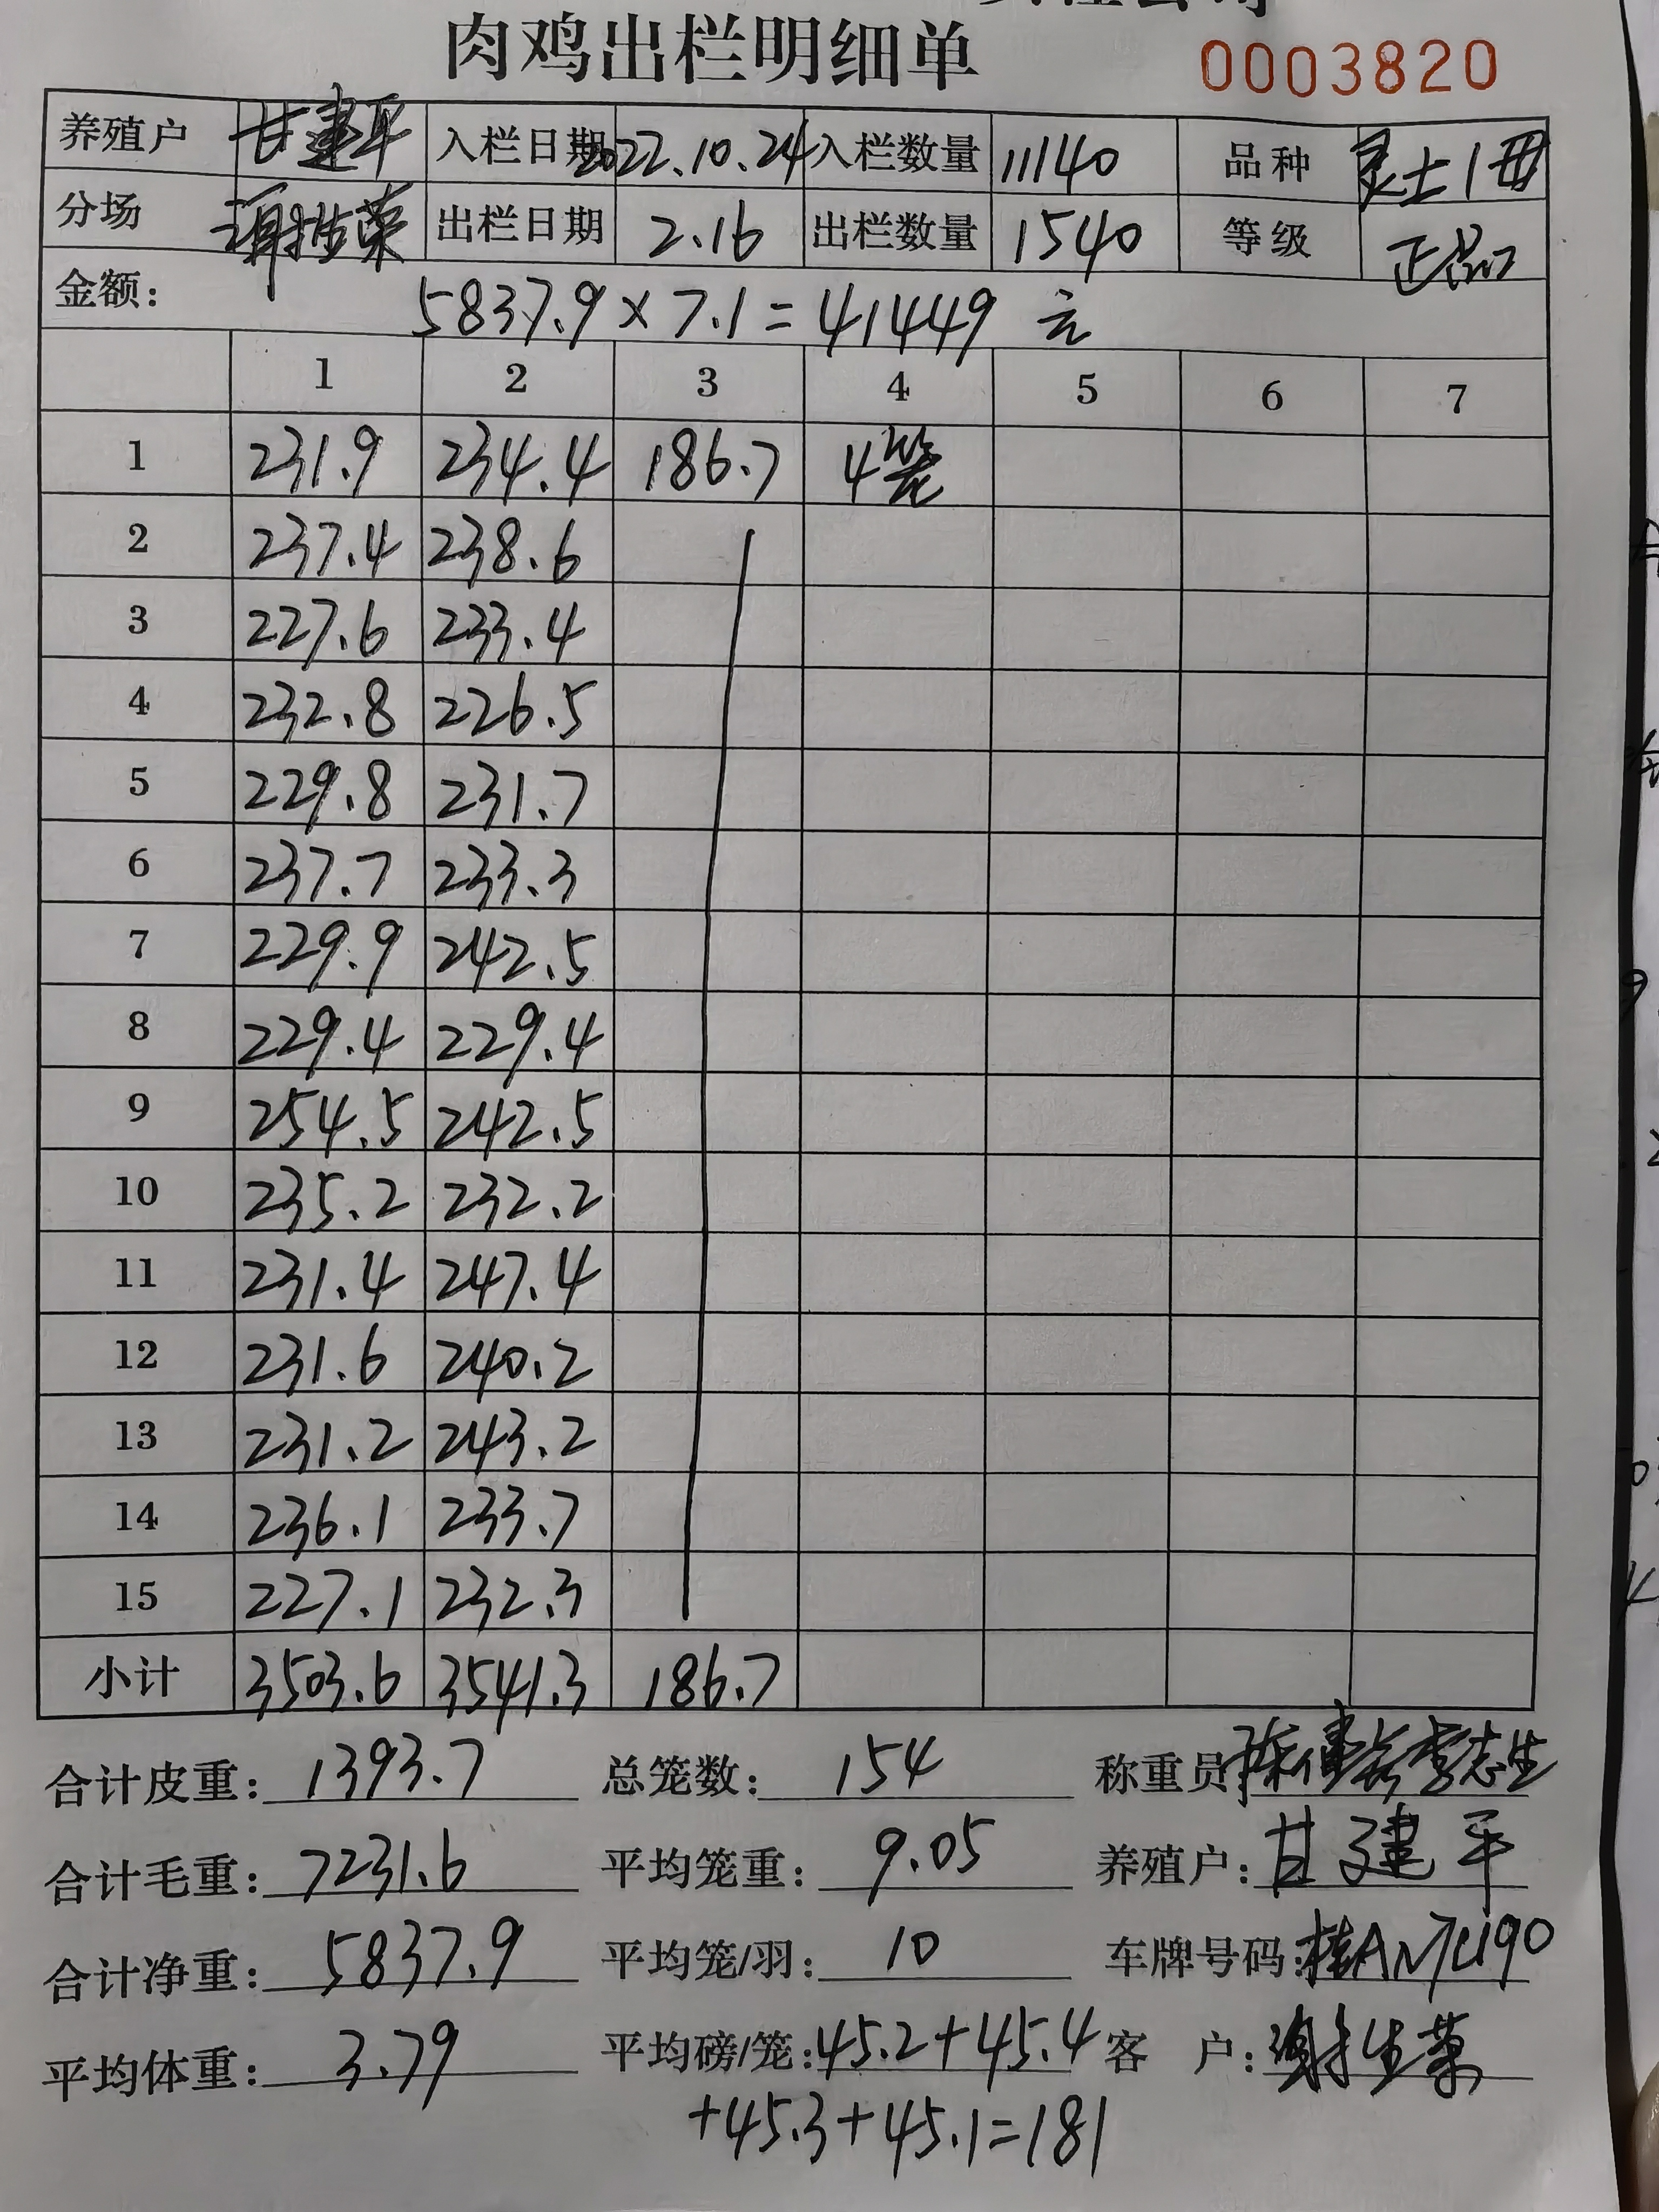 肉鸡出栏明细单
0003820
养殖户 甘建平 入栏日期 2022.10.24 入栏数量 11140 品种 灵土1母
分场 出栏日期 2.16 出栏数量 1540 等级 正品
金额: 5837.9×7.1=41449 元
1 2 3 4 5 6 7
1 231.9 234.4 186.7 4笼
2 237.4 238.6
3 227.6 233.4
4 232.8 226.5
5 229.8 231.7
6 237.7 233.3
7 229.9 242.5
8 229.4 229.4
9 254.5 242.5
10 235.2 232.2
11 231.4 247.4
12 231.6 240.2
13 231.2 243.2
14 236.1 233.7
15 227.1 232.3
小计 3503.6 3541.3 186.7
合计皮重: 1393.7 总笼数: 154 称重员 李志生
合计毛重: 7231.6 平均笼重: 9.05 养殖户: 甘建平
合计净重: 5837.9 平均笼/羽: 10 车牌号码:
平均体重: 3.79 平均磅/笼: 45.2+45.4 客 户:
+45.3+45.1=181